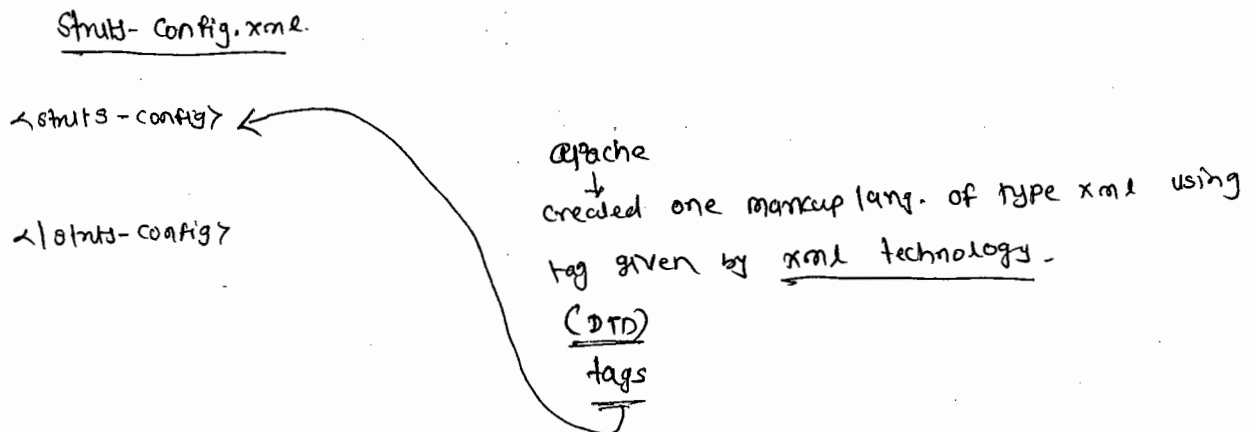 Struts-Config.xml.
<struts-config>
</struts-config>
apache
created one markup lang. of type xml using
tag given by xml technology.
(DTD)
tags